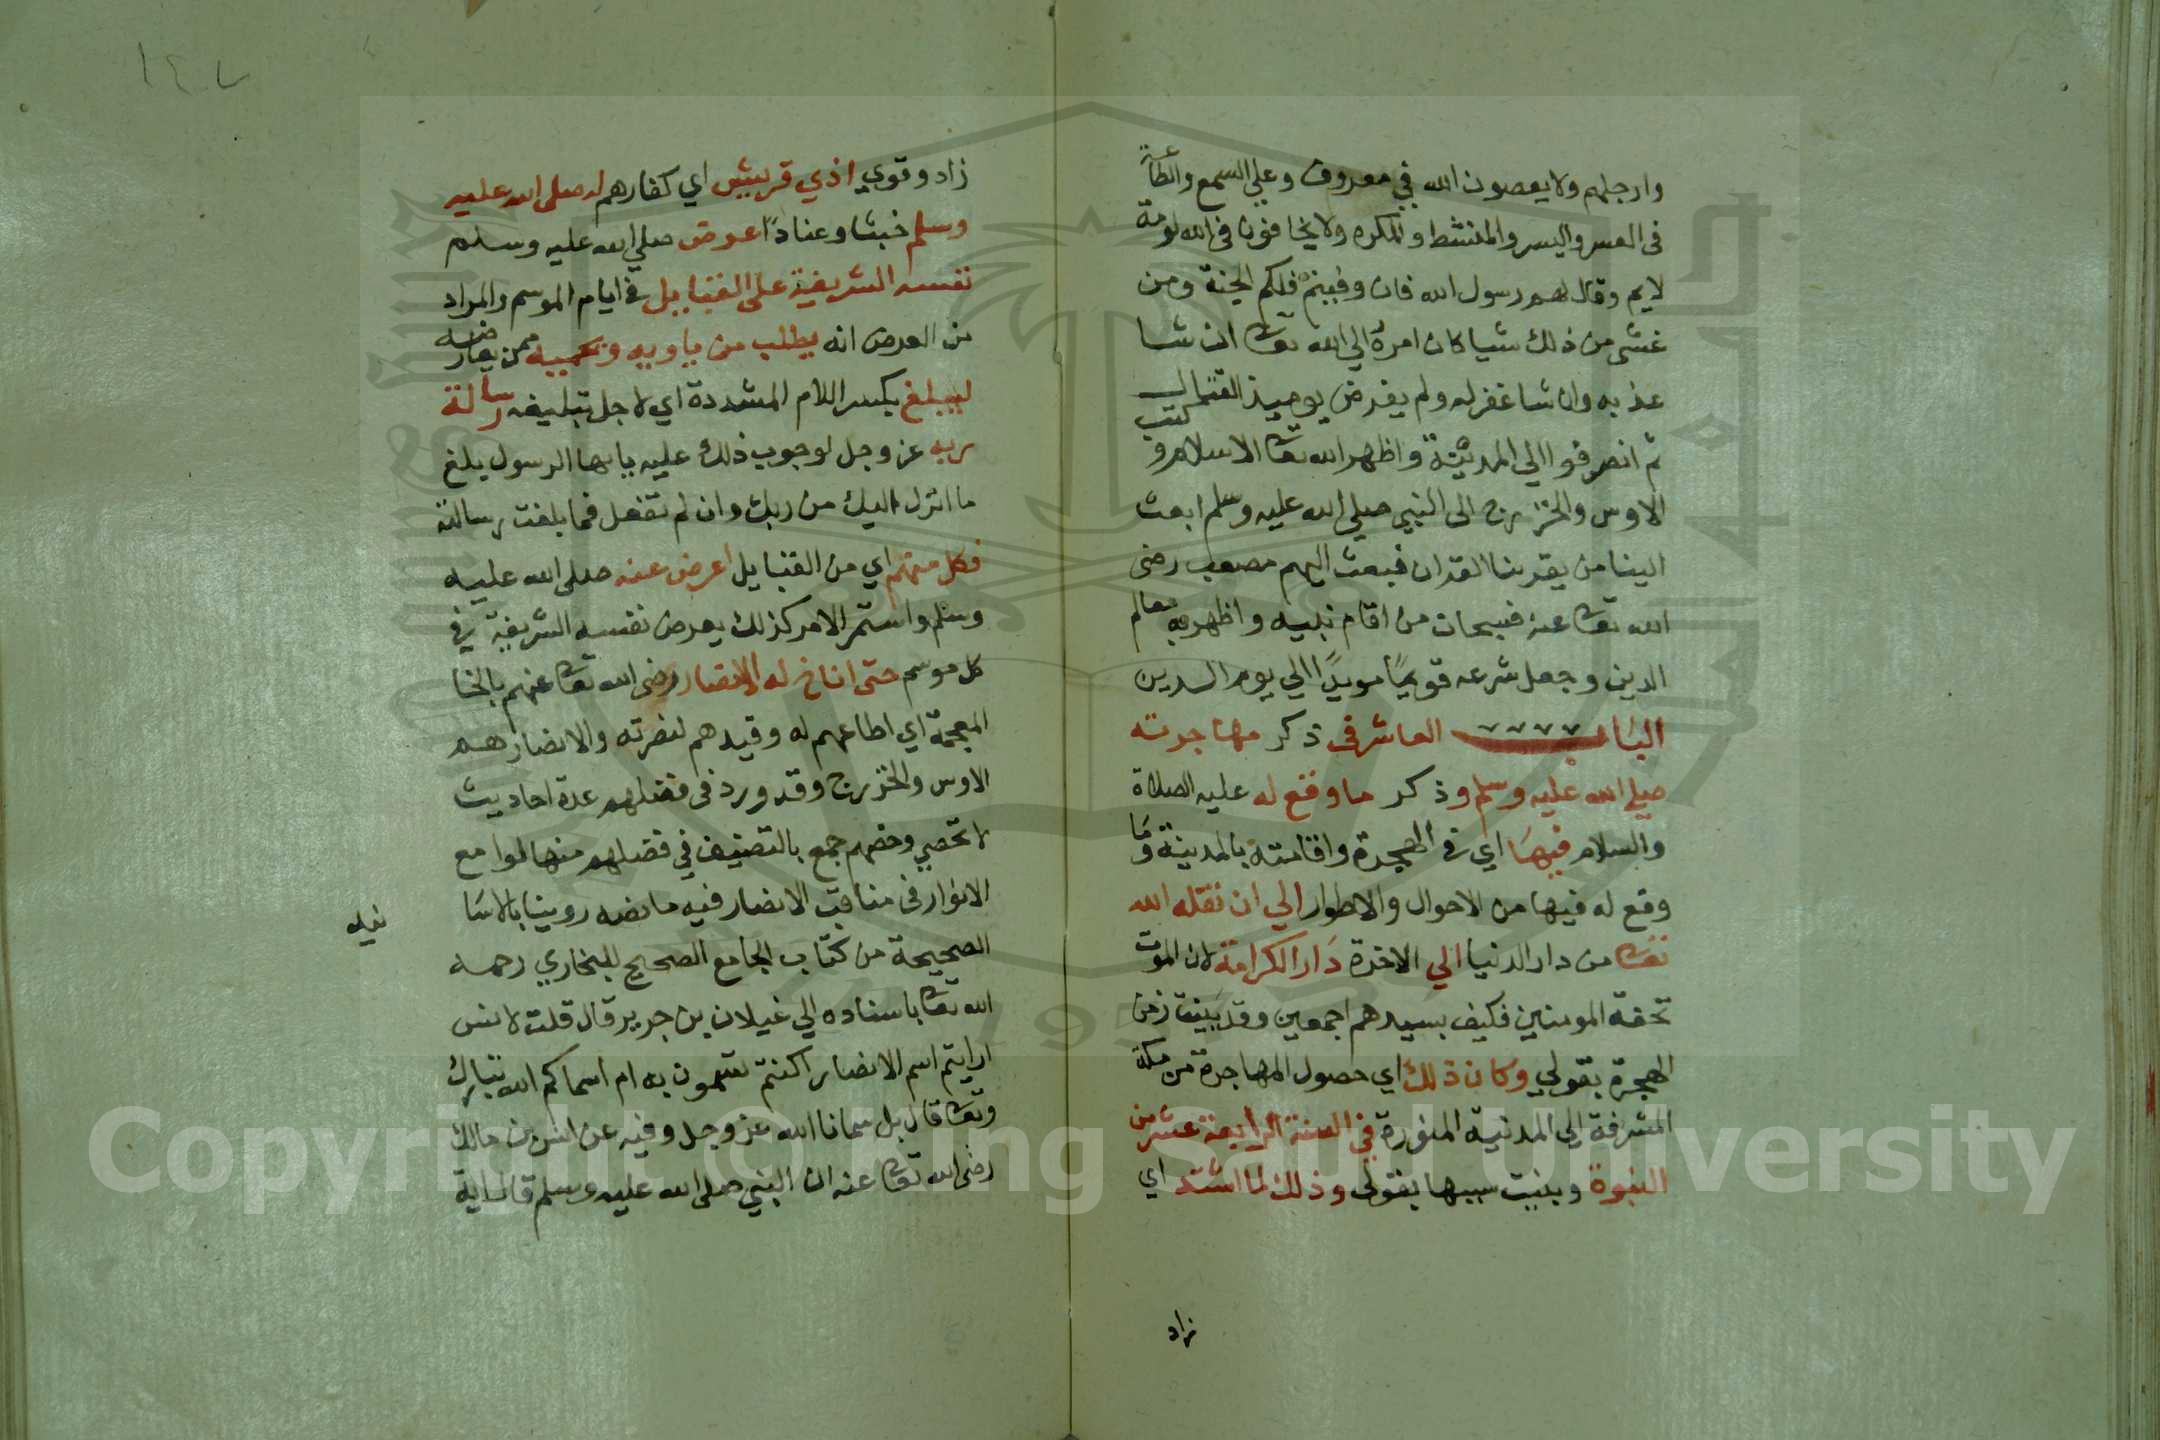 وارجلهم ولا يعصون الله في معروف وعلي السمع والطاعة
في العسر واليسر والمنشط والمكره ولا يخافون في الله لومة
لايم وقال لهم رسول الله فان وفيتم فلكم الجنة ومن
غشي من ذلك شيا كان امره الي الله تعا ان شا
عذبه وان شا غفر له ولم يفرض يوميذ القتال
ثم انصرفوا الي المدينة واظهر الله تعا الاسلام وكتب
الاوس والخزرج الى النبي صلي الله عليه وسلم ابعث
الينا من يقرينا القران فبعث اليهم مصعب رضى
الله تعا عنه فسبحان من اقام نبيه واظهر به معالم
الدين وجعل شرعه قويما مويدًا الي يوم الدين
الباب العاشر في ذكر مهاجرته
صلي الله عليه وسلم وذكر ما وقع له عليه الصلاة
والسلام فيها اي في الهجرة واقامته بالمدينة وما
وقع له فيها من الاحوال والاطوار الي ان نقله الله
تعا من دار الدنيا الي الاخرة دار الكرامة لان الموت
تحفة المومنين فكيف بسيدهم اجمعين وقد بينت زمن
الهجرة بقولي وكان ذلك اي حصول المهاجرة من مكة
المشرفة الي المدينة المنورة في السنة الرابعة عشر من
النبوة وبينت سببها بقولى وذلك لما اشتد اي
زاد
١٤٧
زاد وقوي اذي قريش اي كفارهم له صلى الله عليه
وسلم خبثا وعنادًا عرض صلي الله عليه وسلم
نفسه الشريفة على القبايل في ايام الموسم والمراد
من العرض انه يطلب من ياويه ويحميه ممن يعارضه
ليبلغ بكسر اللام المشددة اي لاجل تبليغه رسالة
ربه عز وجل لوجوب ذلك عليه يايها الرسول بلغ
ما انزل اليك من ربك وان لم تفعل فما بلغت رسالته
فكل منهم اي من القبايل اعرض عنه صلى الله عليه
وسلم واستمر الامر كذلك يعرض نفسه الشريفة في
كل موسم حتى اناخ له الانصار رضى الله تعا عنهم بالخا
المعجمة اي اطاعهم له وقيدهم لنصرته والانصار هم
الاوس والخزرج وقد ورد في فضلهم عدة احاديث
لا تحصي وخصهم جمع بالتصنيف في فضلهم منها لوامع
الانوار في مناقب الانصار فيه ما نصه روينا بالاسا
نيد
الصحيحة من كتاب الجامع الصحيح للبخاري رحمه
الله تعا باسناده الي غيلان بن جرير قال قلت لانس
ارايتم اسم الانصار اكنتم تسمون به ام اسماكم الله تبارك
وتعا قال بل سمانا الله عز وجل وفيه عن انس بن مالك
رضى الله تعا عنه ان النبي صلى الله عليه وسلم قال اية
Copyright © King Saud University
1957